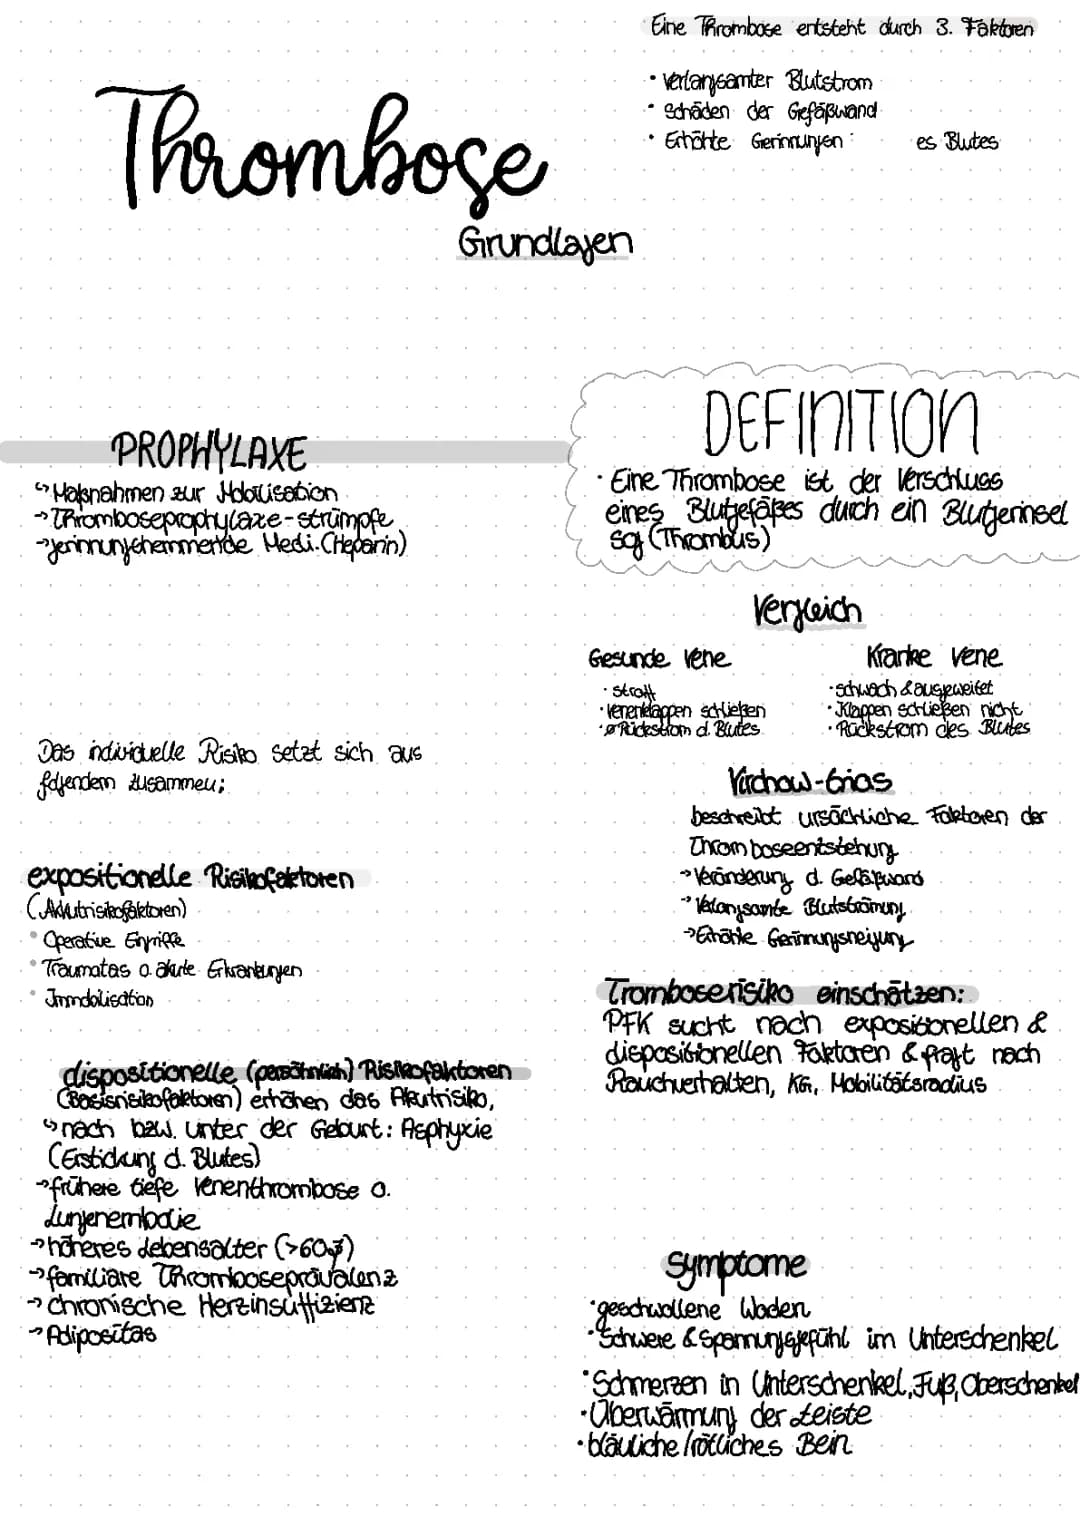 Eine Thrombose entsteht durch 3. Faktoren
• verlangsamter Blutstrom
• Schäden der Gefäßwand
• Erhöhte Gerinnungen es Blutes
Thrombose
Grundlagen
PROPHYLAXE
↪ Maßnahmen zur Mobilisation
→ Thromboseprophylaxe-strümpfe
→ gerinnungshemmende Medi. (Heparin)
DEFINITION
• Eine Thrombose ist der Verschluss
eines Blutgefäßes durch ein Blutgerinsel
sog (Thrombus)
Vergleich
Gesunde Vene
• straff
• Venenklappen schließen
• ø Rückstrom d. Blutes
Kranke Vene
• schwach & ausgeweitet
• Klappen schließen nicht
• Rückstrom des Blutes
Das individuelle Risiko setzt sich aus
folgendem zusammen;
Virchow-trias
beschreibt ursächliche Faktoren der
Thromboseentstehung
→ Veränderung d. Gefäßwand
→ Verlangsamte Blutströmung
→ Erhöhte Gerinnungsneigung
expositionelle Risikofaktoren
(Akkutrisikofaktoren)
• Operative Eingriffe
• Traumatas o. akute Erkrankungen
• Immobilisation
Tromboserisiko einschätzen:
PFK sucht nach expositionellen &
dispositionellen Faktoren & fragt nach
Rauchverhalten, KG, Mobilitätsradius
dispositionelle (persöhnlich) Risikofaktoren
(Basisrisikofaktoren) erhöhen das Akutrisiko,
↪ nach bzw. unter der Geburt: Asphyxie
(Erstickung d. Blutes)
→ frühere tiefe Venenthrombose o.
Lungenembolie
→ höheres Lebensalter (>60J)
→ familiäre Thromboseprävalenz
→ chronische Herzinsuffizienz
→ Adipositas
Symptome
• geschwollene Waden
• Schwere & Spannungsgefühl im Unterschenkel
• Schmerzen in Unterschenkel, Fuß, Oberschenkel
• Überwärmung der Leiste
• bläuliche/rötliches Bein